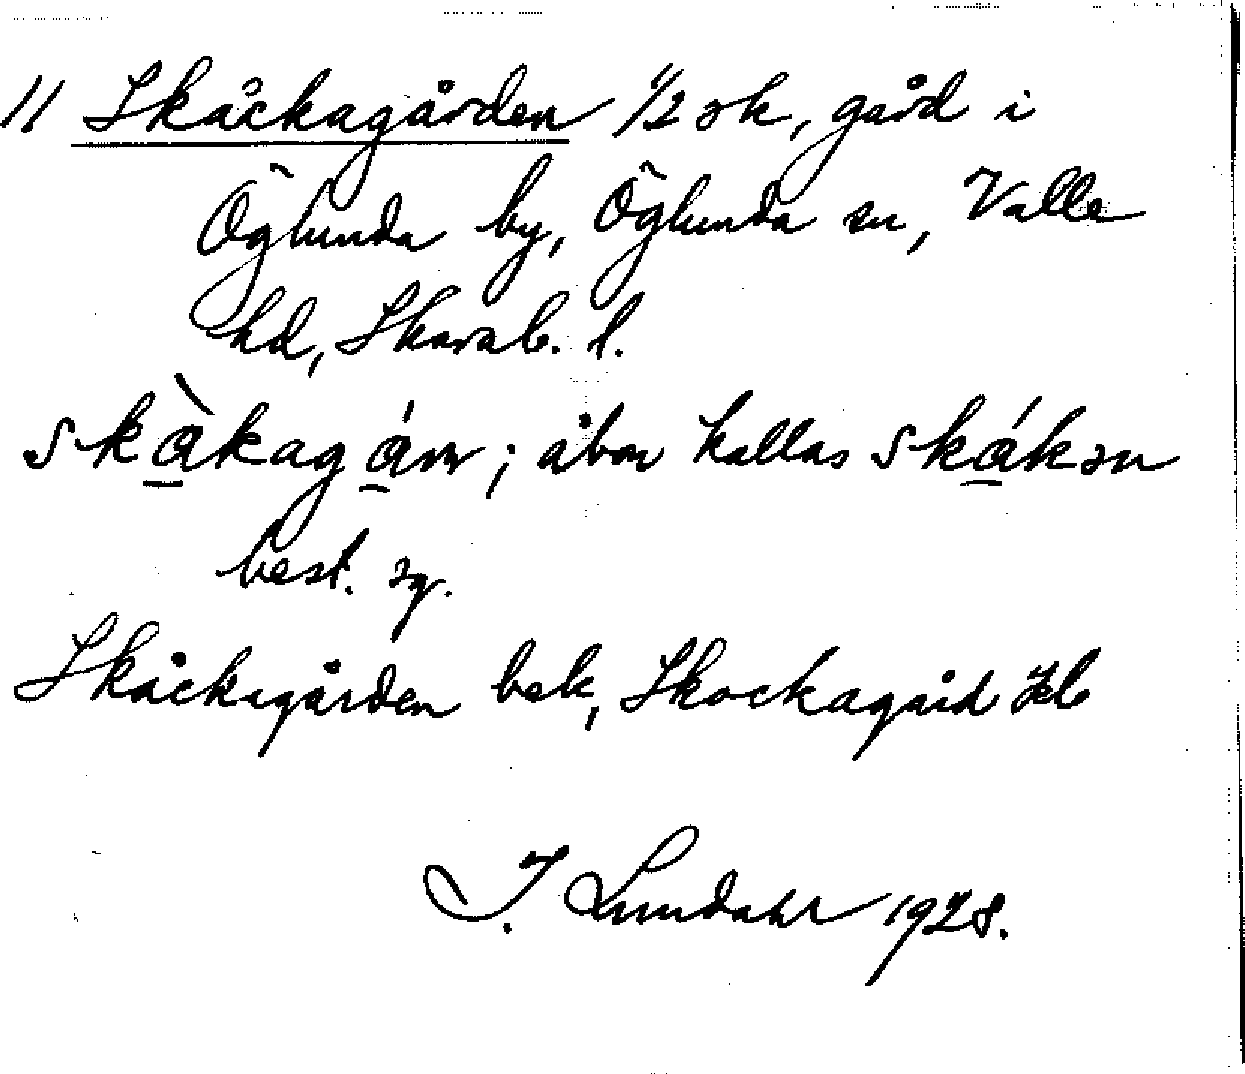 11 Skåckagården 1/2 sk, gård i
Öglunda by, Öglunda sn, Valle
hd, Skarab. l.
skàkagán; åbon kallas skákən
best. sg.
Skåckagården bek, Skockagård Jb
I. Lundahl 1928.